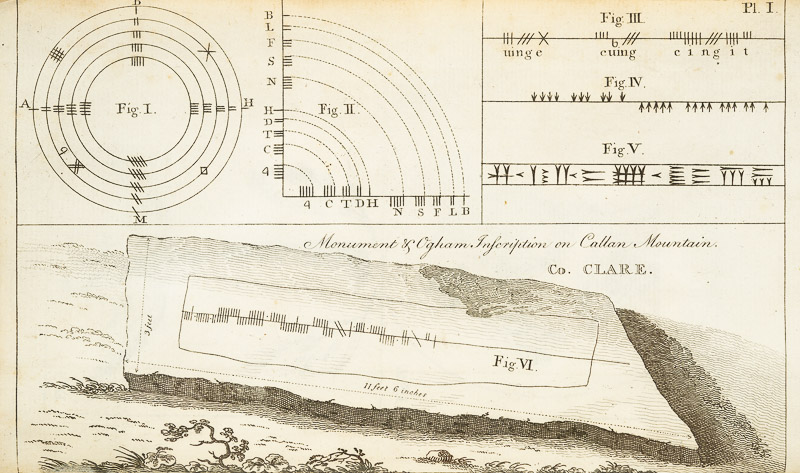 Pl. I.
B
A
Fig. I.
H
M
B
L
F
S
N
Fig. II.
H
D
T
C
q
q C T D H N S F L B
Fig. III.
uinge cuing cingit
b
Fig. IV.
Fig. V.
Monument & Ogham Inscription on Callan Mountain.
Co. CLARE.
3 feet
Fig. VI.
11 feet 6 inches